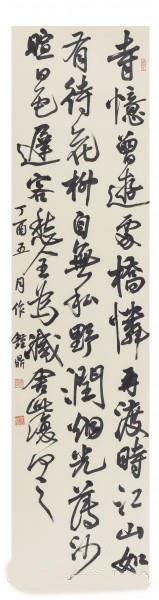 寺憶曾遊處橋憐再渡時江山如
有待花柳自無私野潤烟光薄沙
暄日色遲客愁全為減舍此復何之
丁酉五月作 鍾鼎